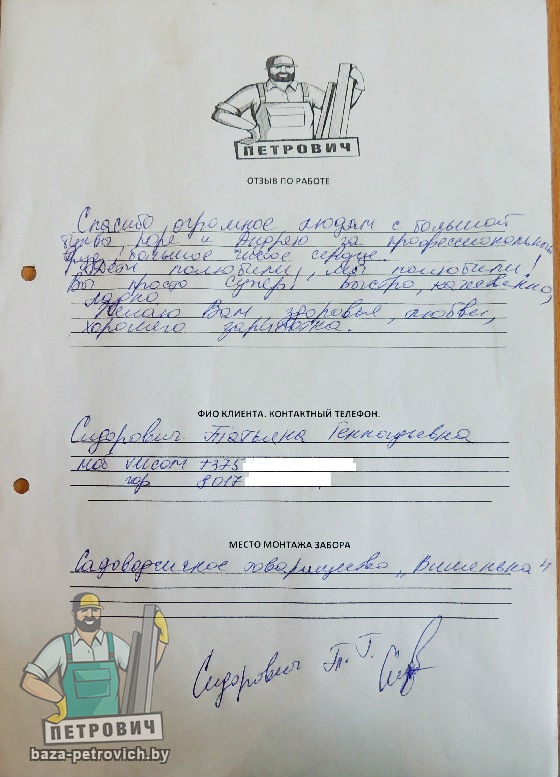 ПЕТРОВИЧ
ОТЗЫВ ПО РАБОТЕ
Спасибо огромное людям с большой
буквы, Юре и Андрею за профессиональный
труд, большое чистое сердце.
Дети полюбили, мы полюбили!
Вы просто Супер! Быстро, качевенно,
ладно.
Желаю Вам здоровья, любви,
хорошего заработка.
ФИО КЛИЕНТА. КОНТАКТНЫЙ ТЕЛЕФОН.
Сидорович Татьяна Геннадьевна
моб +375
гор 8017
МЕСТО МОНТАЖА ЗАБОРА
Садоводческое товарищество „
Сидорович Т. Г.
ПЕТРОВИЧ
baza-petrovich.by